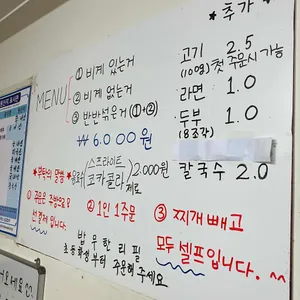 MENU
① 비계 있는거
② 비계 없는거
③ 반반섞은거 (①+②)
₩ 6.000 원
음료수 (스프라이트 코카콜라) 2.000원
제로
* 추가 *
고기 2.5
(100g) 첫 주문시 가능
라면 1.0
두부 1.0
(8조각)
칼국수 2.0
① 주문은
선결제 입니다.
② 1인 1주문
③ 찌개 빼고
모두 셀프입니다. ^^
밥 무한 리필
초등학생부터 주문해 주세요.